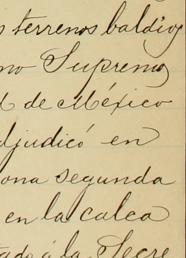 s terrenos baldios
no Supremo
d de México
djudicó en
ona segunda
en la calca
tado á la Secre